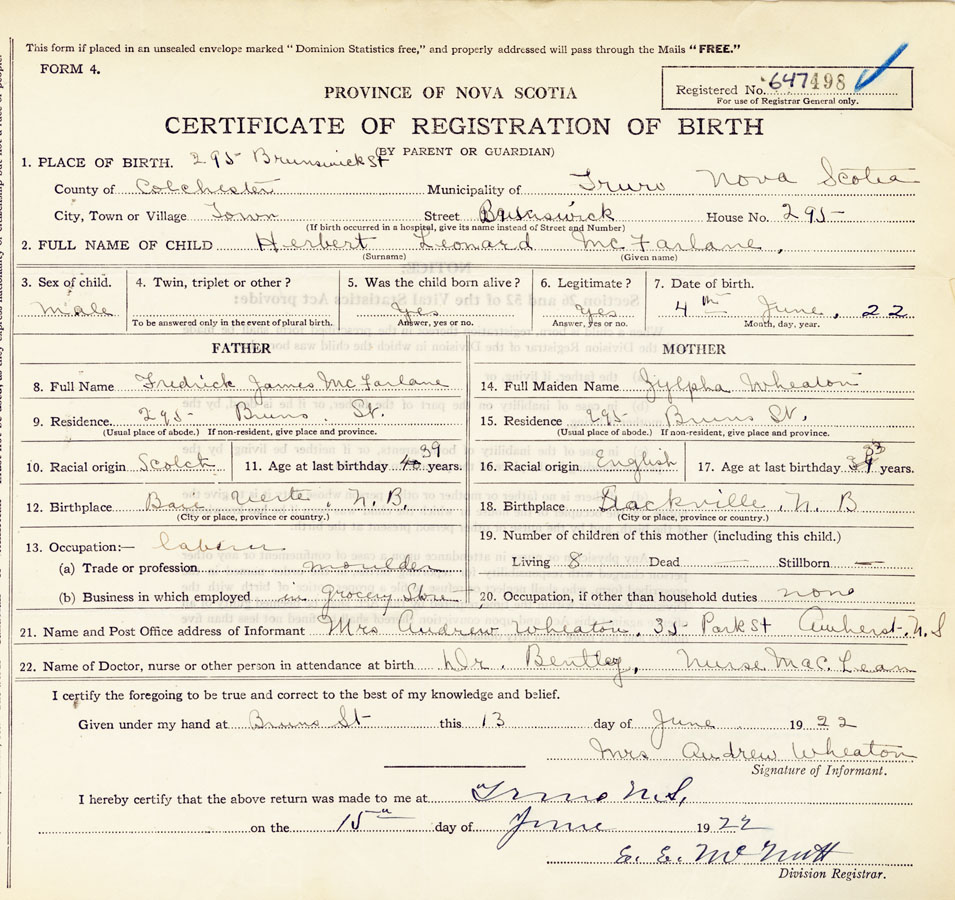 This form if placed in an unsealed envelope marked "Dominion Statistics free," and properly addressed will pass through the Mails "FREE."
FORM 4.
Registered No. 647498
For use of Registrar General only.
PROVINCE OF NOVA SCOTIA
CERTIFICATE OF REGISTRATION OF BIRTH
(BY PARENT OR GUARDIAN)
1. PLACE OF BIRTH. 295 Brunswick St
County of Colchester Municipality of Truro Nova Scotia
City, Town or Village Town Street Brunswick House No. 295
(If birth occurred in a hospital, give its name instead of Street and Number)
2. FULL NAME OF CHILD Herbert Leonard McFarlane,
(Surname) (Given name)
3. Sex of child. 4. Twin, triplet or other? 5. Was the child born alive? 6. Legitimate? 7. Date of birth.
male Yes Yes 4th June, 22
To be answered only in the event of plural birth. Answer, yes or no. Answer, yes or no. Month, day, year.
FATHER MOTHER
8. Full Name Fredrick James McFarlane 14. Full Maiden Name Zylpha Wheaton
9. Residence 295 Bruns St. 15. Residence 295 Bruns St.
(Usual place of abode.) If non-resident, give place and province. (Usual place of abode.) If non-resident, give place and province.
10. Racial origin Scotch 11. Age at last birthday 39 years. 16. Racial origin English 17. Age at last birthday 33 years.
12. Birthplace Baie Verte, N.B. 18. Birthplace Sackville, N.B
(City or place, province or country.) (City or place, province or country.)
13. Occupation:— laborer 19. Number of children of this mother (including this child.)
(a) Trade or profession moulder Living 8 Dead — Stillborn —
(b) Business in which employed in Grocery Store 20. Occupation, if other than household duties none
21. Name and Post Office address of Informant Mrs Andrew Wheaton, 35 Park St Amherst. N.S
22. Name of Doctor, nurse or other person in attendance at birth Dr. Bentley, Nurse MacLean
I certify the foregoing to be true and correct to the best of my knowledge and belief.
Given under my hand at Bruns St this 13 day of June 1922
Mrs Andrew Wheaton
Signature of Informant.
I hereby certify that the above return was made to me at Truro N.S,
on the 15th day of June 1922
E. E. McNutt
Division Registrar.